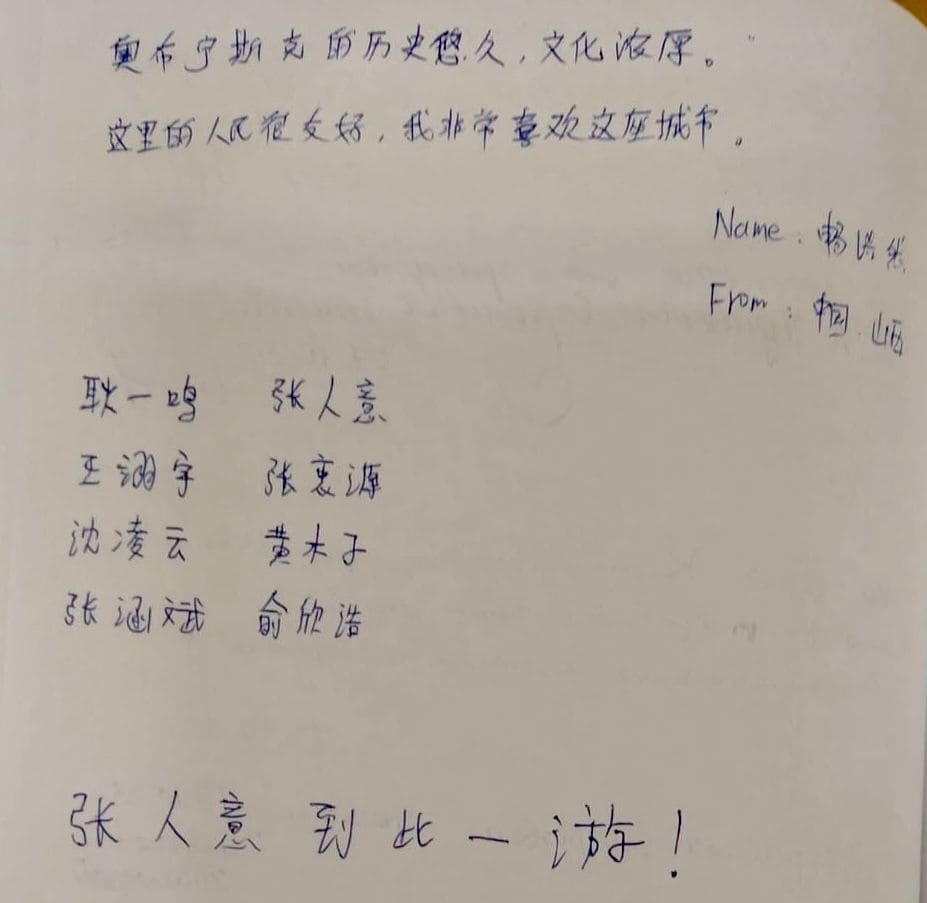 奥布宁斯克的历史悠久,文化浓厚。
这里的人民很友好,我非常喜欢这座城市。
Name: 畅浩然
From: 中国 山西
耿一鸣 张人意
王诩宇 张袁源
沈凌云 黄木子
张涵斌 俞欣浩
张人意到此一游!